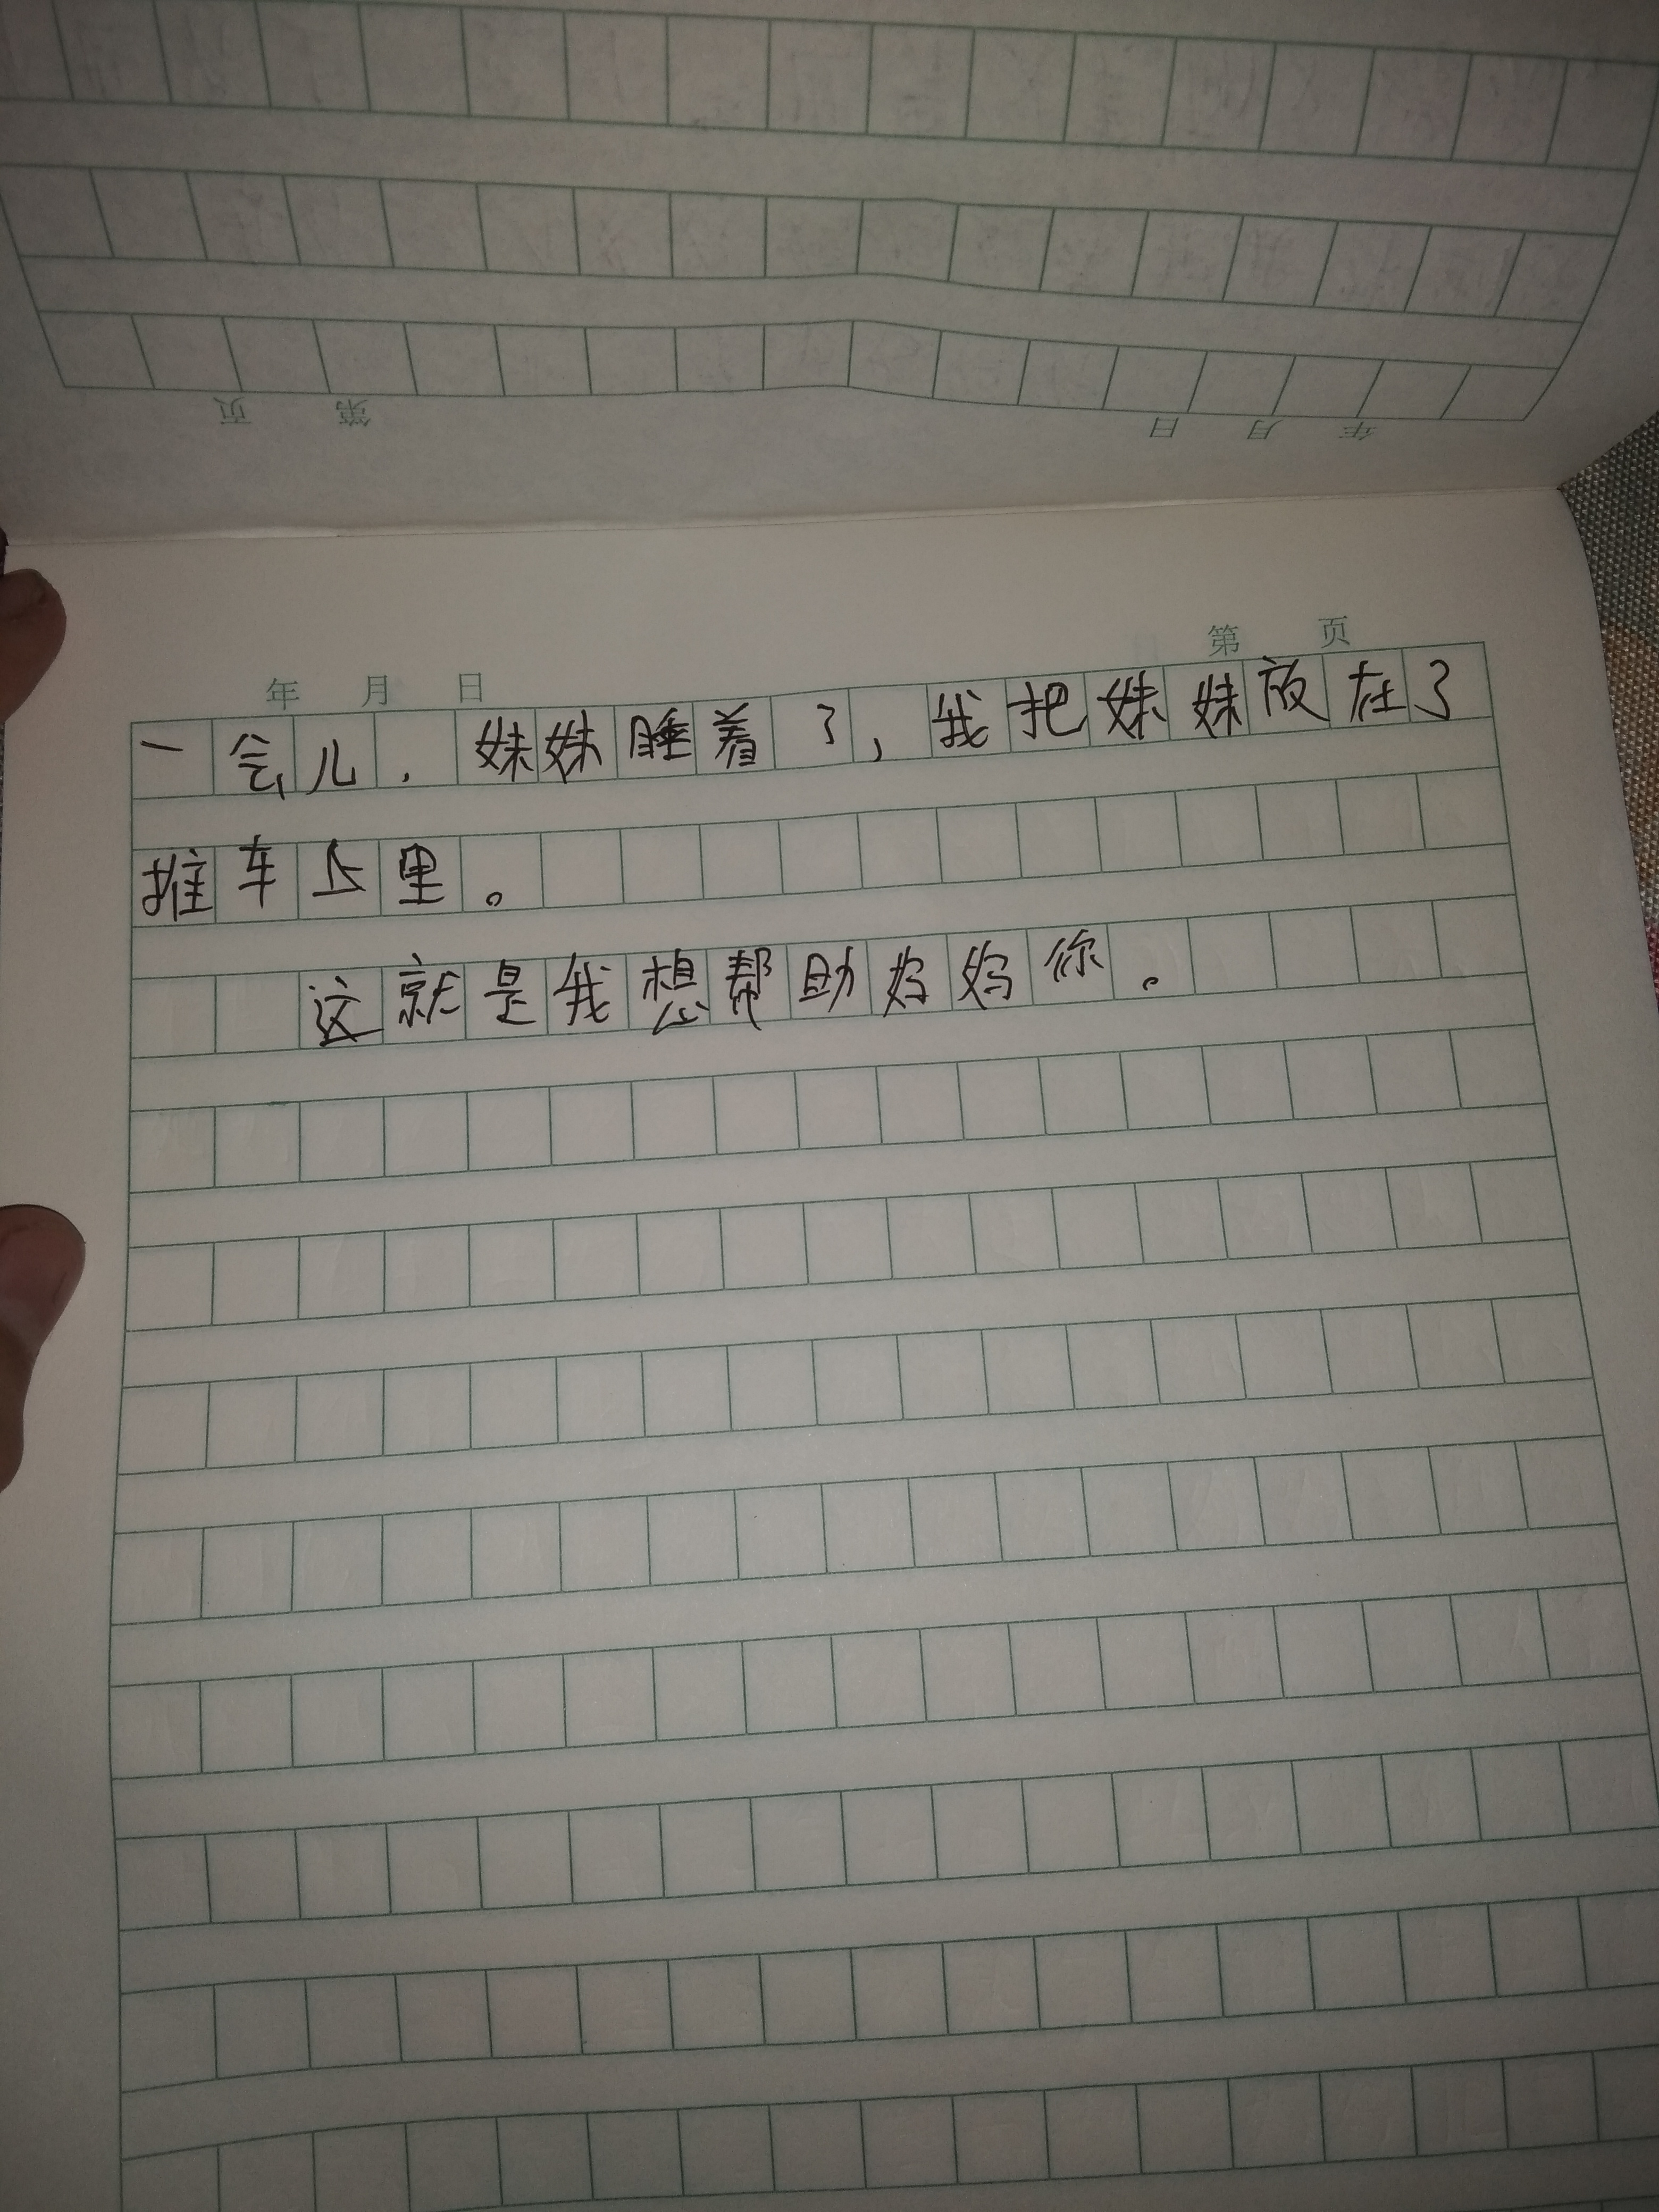 页 第 日 月 年
年 月 日 第 页
一会儿，妹妹睡着了，我把妹妹放在了
推车上里。
这就是我想帮助妈妈你。